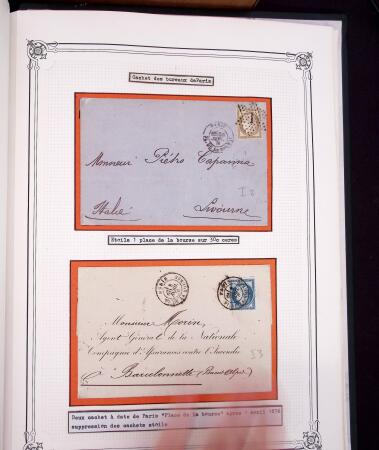 Cachet des bureaux de Paris
PARIS
Monsieur Piétro Capanna
I 2
Italie Livourne
Etoile 1 place de la bourse sur 30c ceres
PARIS
PARIS
Monsieur Morin
Agent Général de la Nationale
Compagnie d'Assurances contre l'Incendie
53
Barcelonnette (Basses Alpes)
Deux cachet à date de Paris "Place de la bourse" après avril 1876
suppression des cachets étoile